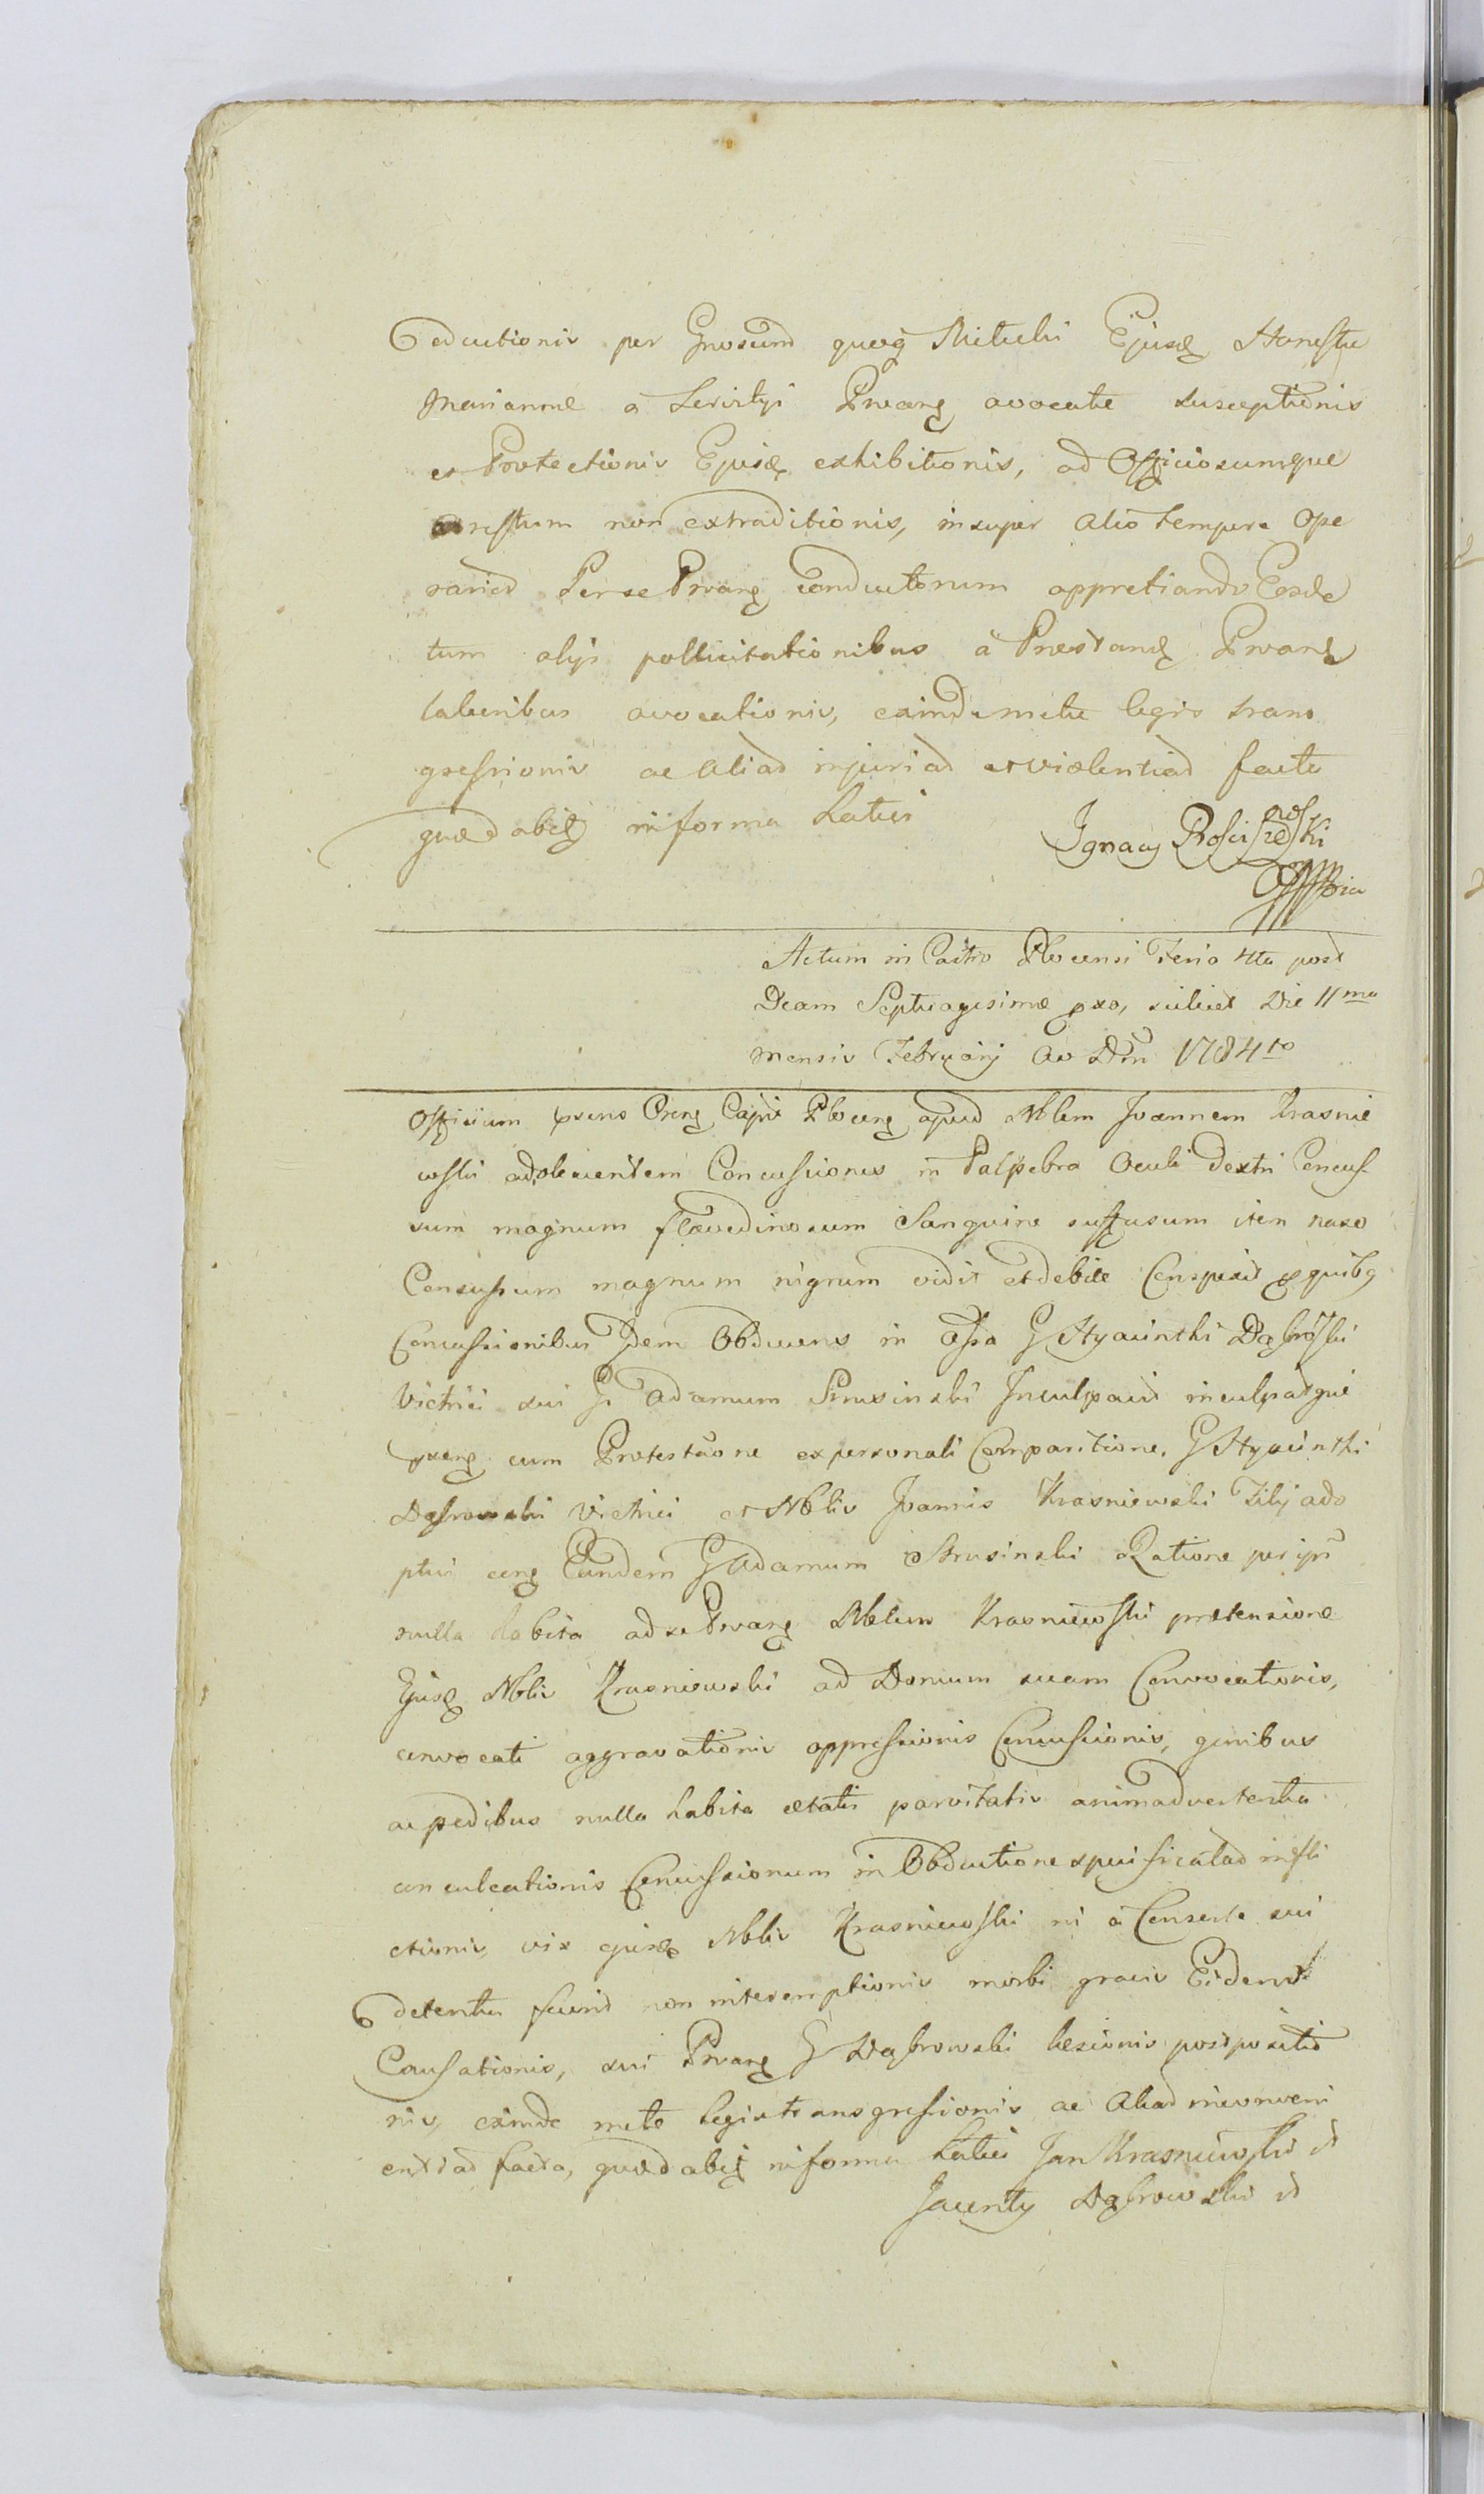 eductionis per Gnosum quoq Mituchi Ejusd Honestæ
Mariannæ a Servityi Prvang avocatæ susceptionis
et Protectionis Ejusd exhibitionis, ad Officiosumque
arestum non extraditionis, insuper alio tempore Ope
rarios Per se Prvang conductorum appretiando Eosde
tum alijs pollicitationibus a Præstand Prvang
laboribus avocationis, eaindemetu legis trans
gressionis ac aliad injuriad et violentiad facta
quæd abitq in forma Latiri
Ignacy Rosciszewski
Actum in Castro Plocensi Feria 4ta post
Dcam Septuagesimæ pxa, scilicet Die 11ma
Mensis Februarij Ao Dni 1784to
Officium pxens Capti Plocens apud Nblem Joannem Krasnie
wski adolecentem Concussiones in Palpebra Oculi Dextri Concus
sum magnum flavedinosum Sanguine suffusum item naso
Concussum magnum nigrum vidit et debite Conspexit pro quibq
Concussionibus Idem Obducens in Assa G Hyacinthi Dąbrowski
Victrici sui G Adamum Strusinski Inculpavit inculpatque
pxeng cum Protestaone ex personali Comparitione G Hyacinthi
Dąbrowski Victrici et Nblis Joannis Krasniewski Filij ado
ptivi cong Eundem G Adamum Strusinski Ratione per ipm
nulla habita ad se Prvang Nblem Krasniewski prætensione
Ejusd Nblis Krasniewski ad Domum suam Convocationis,
convocati aggravationis oppressionis Concussionis, genibus
ac pedibus nulla habita ætatis parvitatis animadvertentia
conculcationis Concussionum in Obductione specificatad infli
ctionis, vix ejusd Nblis Krasniewski ni a Consorte sui
detentus fuerit non interemptionis morbi gravis Eidem
Causationis, sui Prvang G Dąbrowski læsionis postpositio
nis, exinde metæ Legis transgressionis ac Aliad inconveni
entiad facta, quæd abitq in forma Latiri Jan Krasniewski
Jacenty Dąbrowski